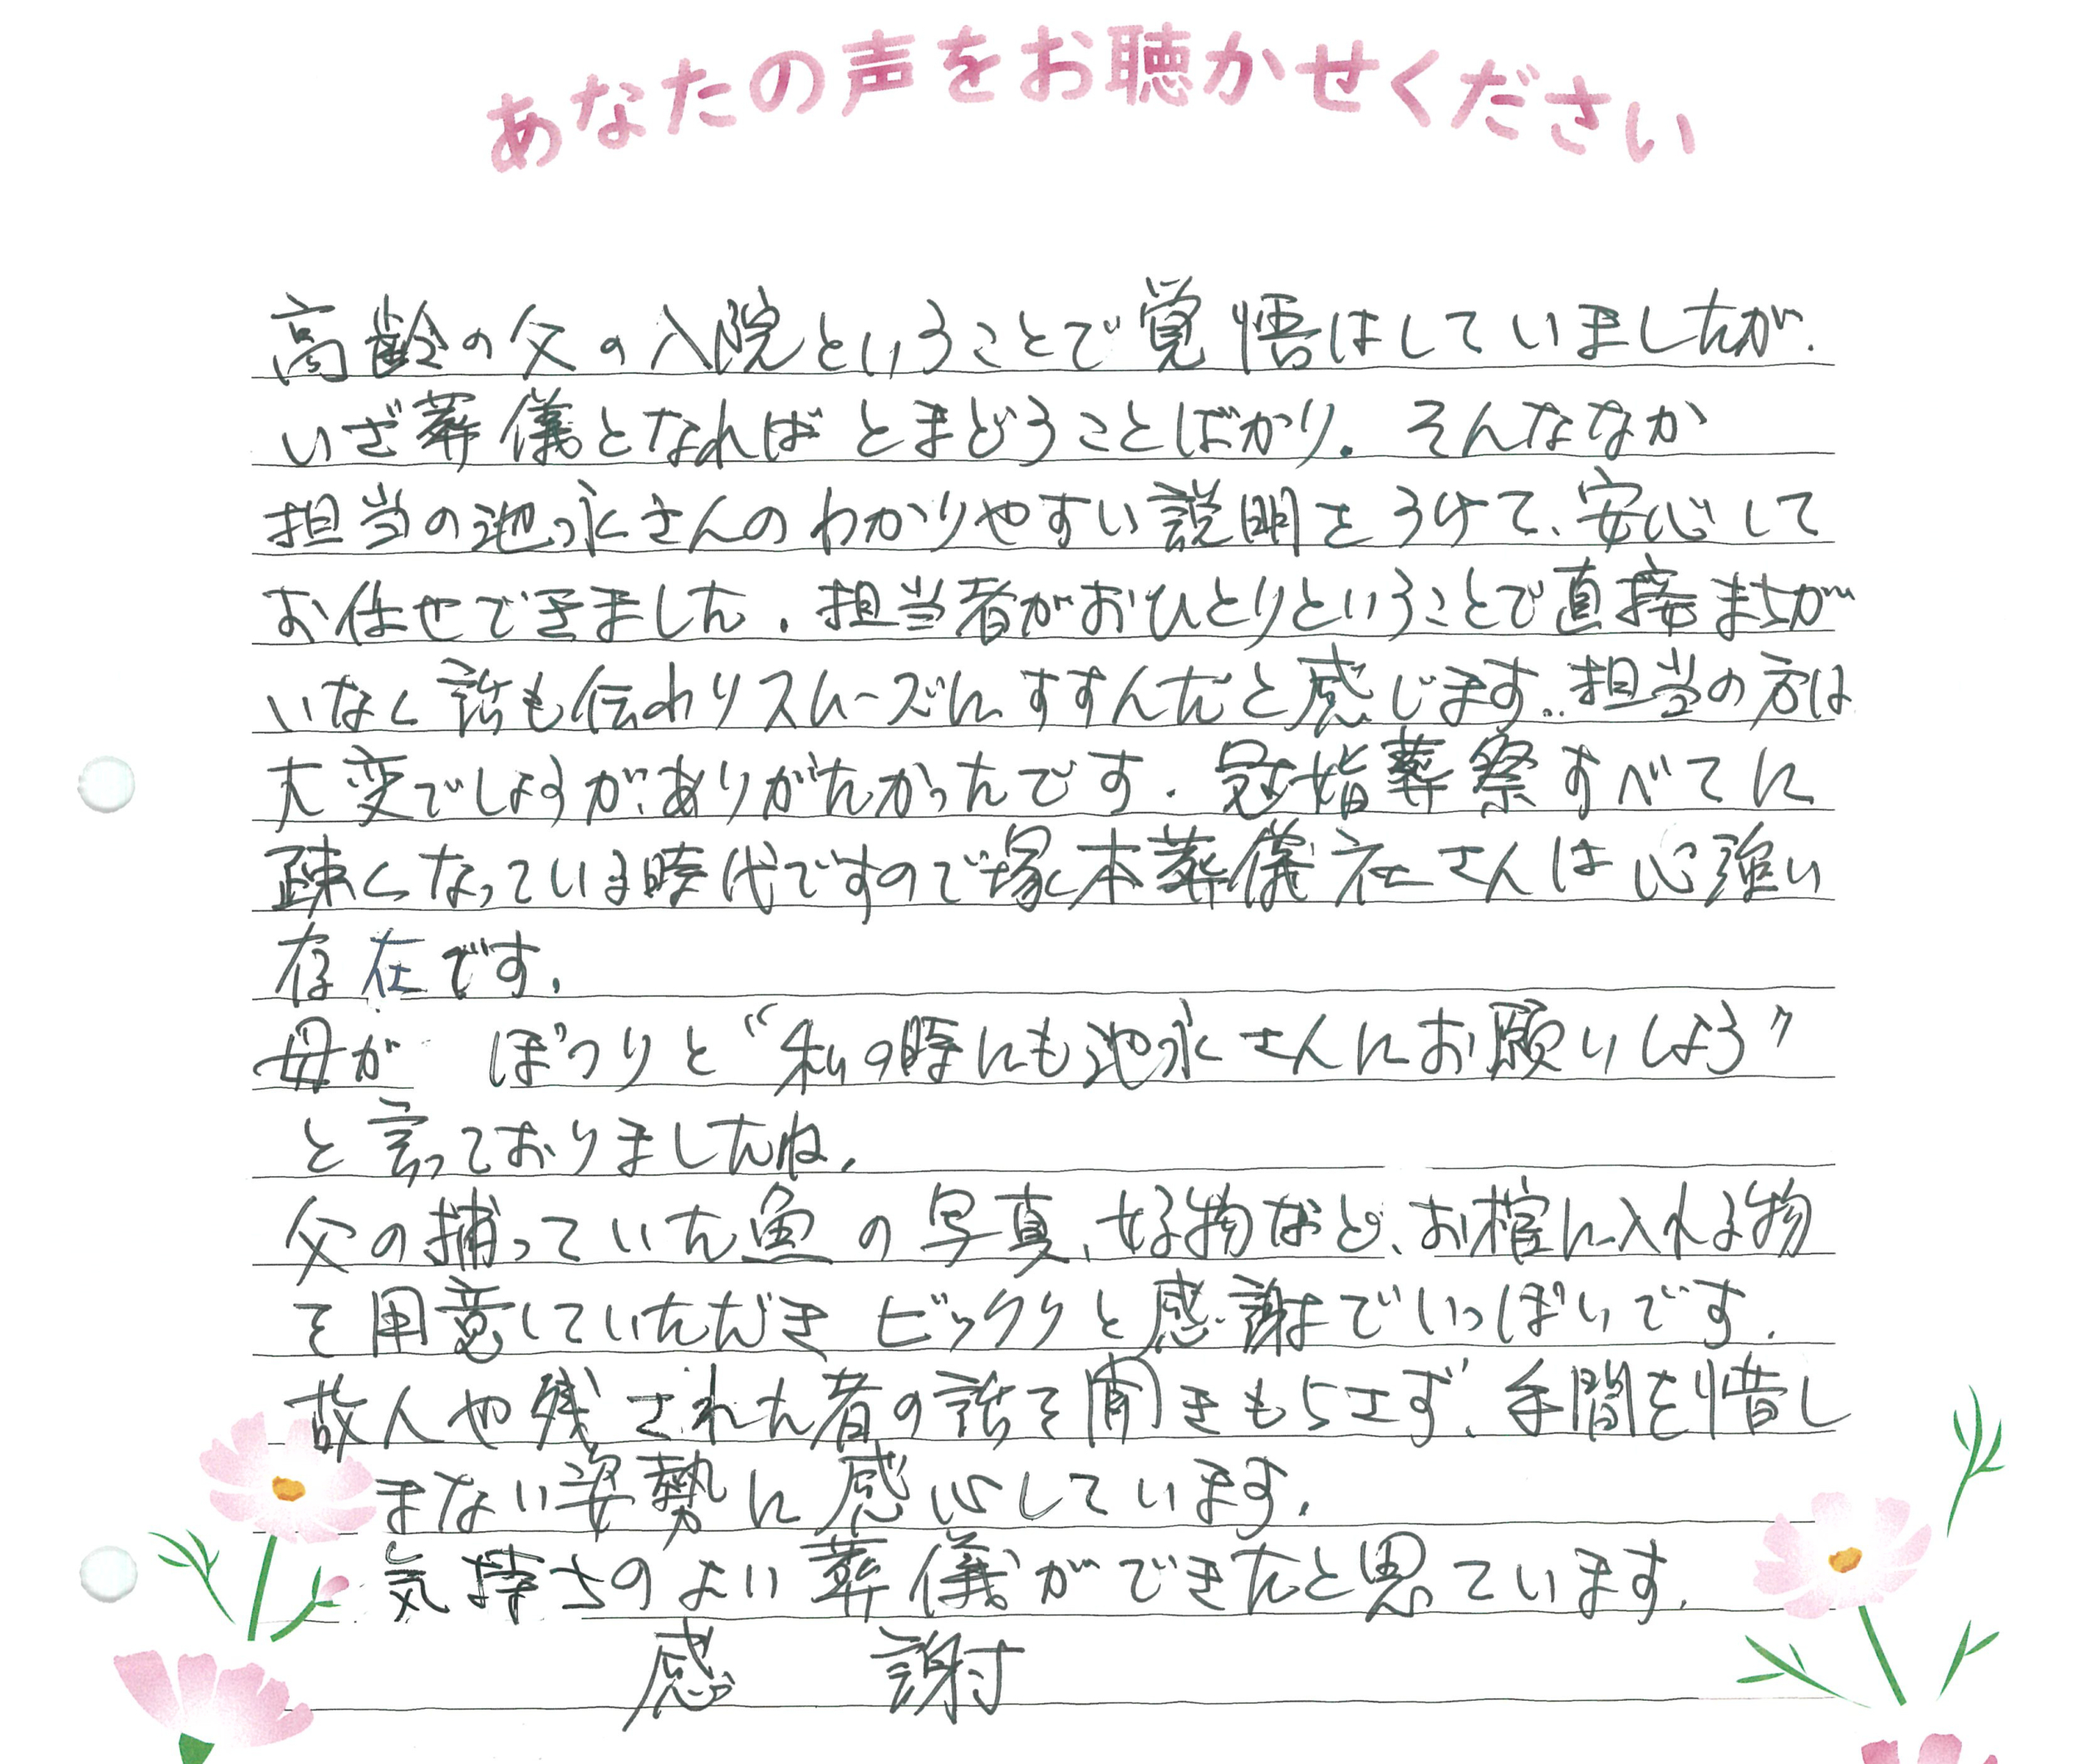 あなたの声をお聴かせください
高齢の父の入院ということで覚悟はしていましたが、
いざ葬儀となればとまどうことばかり。そんななか
担当の池永さんのわかりやすい説明をうけて、安心して
お任せできました。担当者がおひとりということで直接まちが
いなく話も伝わりスムーズにすすんだと感じます。担当の方は
大変でしょうが、ありがたかったです。冠婚葬祭すべてに
疎くなっている時代ですので塚本葬儀社さんは心強い
存在です。
母が ぽつりと“私の時にも池永さんにお願いしよう”
と言っておりましたね。
父の捕っていた魚の写真、好物など、お棺に入れる物
を用意していただき ビックリと感謝でいっぱいです。
故人や残された者の話を聞きもらさず、手間を惜し
まない姿勢に感心しています。
気持ちのよい葬儀ができたと思ています。
感 謝